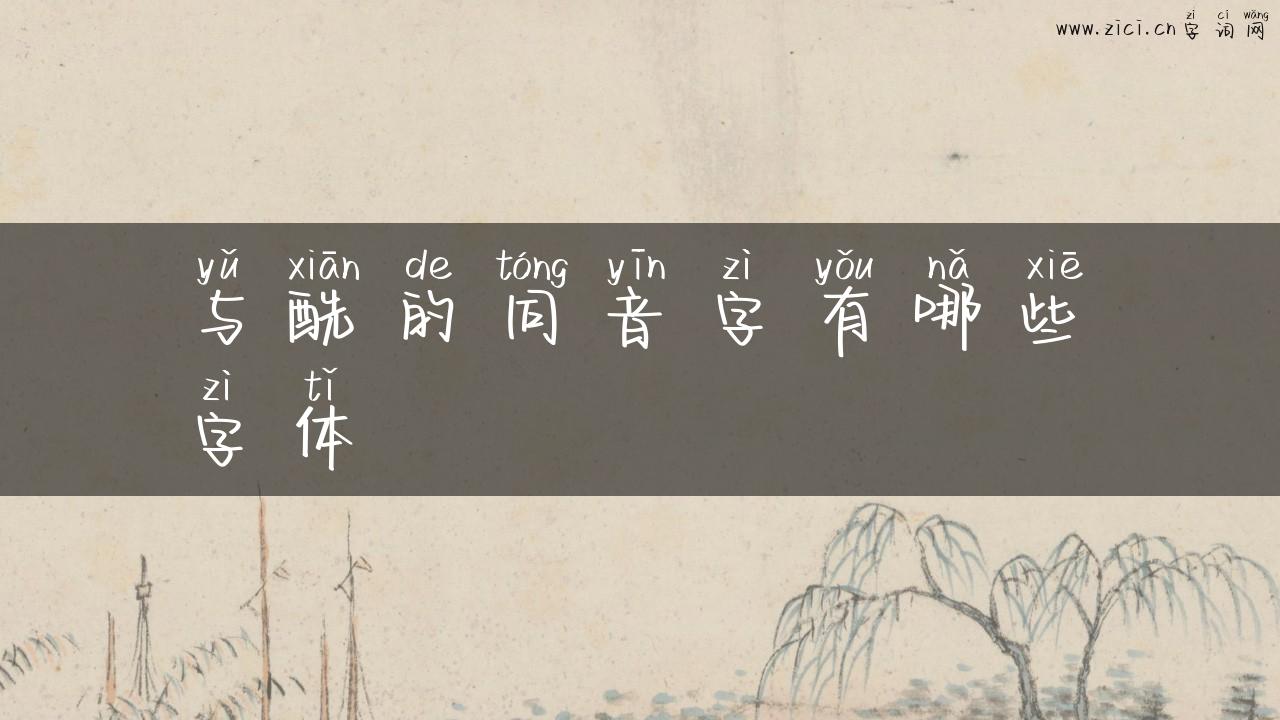 zì cí wǎng
www.zici.cn 字 词 网
yǔ xiān de tóng yīn zì yǒu nǎ xiē
与 酰 的 同 音 字 有 哪 些
zì tǐ
字 体